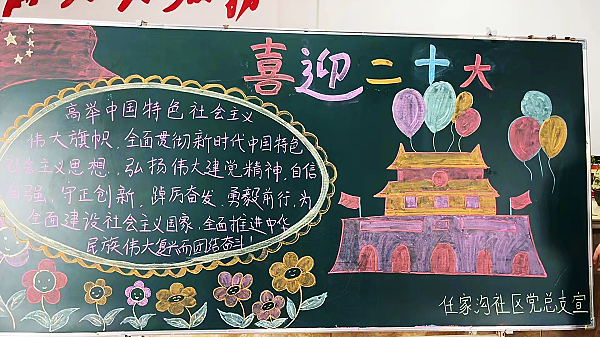 喜迎二十大
高举中国特色社会主义
伟大旗帜、全面贯彻新时代中国特色
社会主义思想，弘扬伟大建党精神，自信
自强、守正创新，踔厉奋发、勇毅前行，为
全面建设社会主义国家，全面推进中华
民族伟大复兴而团结奋斗！
任家沟社区党总支宣